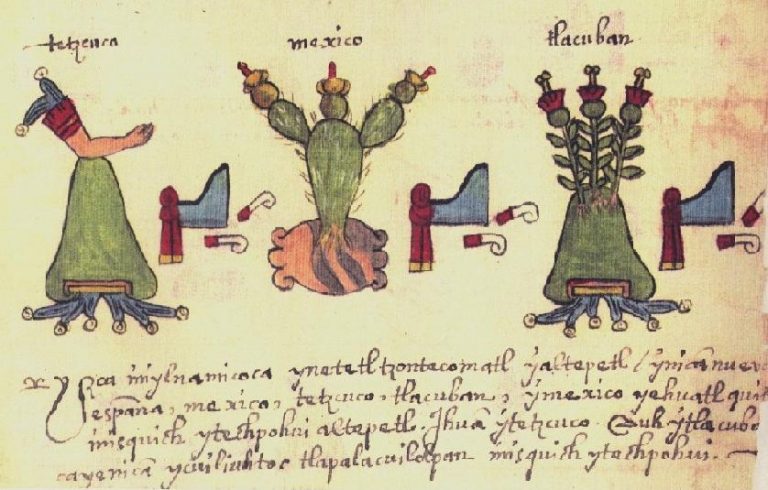 tetzcuco
mexico
tlacuban
Yzca imylnamicoca ynetetl tzontecomatl yaltepetl / ynicā nueva
españa, mexico, tetzcuco, tlacuban, ymexico yehuatl quit
ixquich ytechpohui altepetl. Ihuā ytetzcuco. Auh ytlacuba
cayenicā ycuiliuhtoc tlapalacuilolpan ixquich ytechpohui.